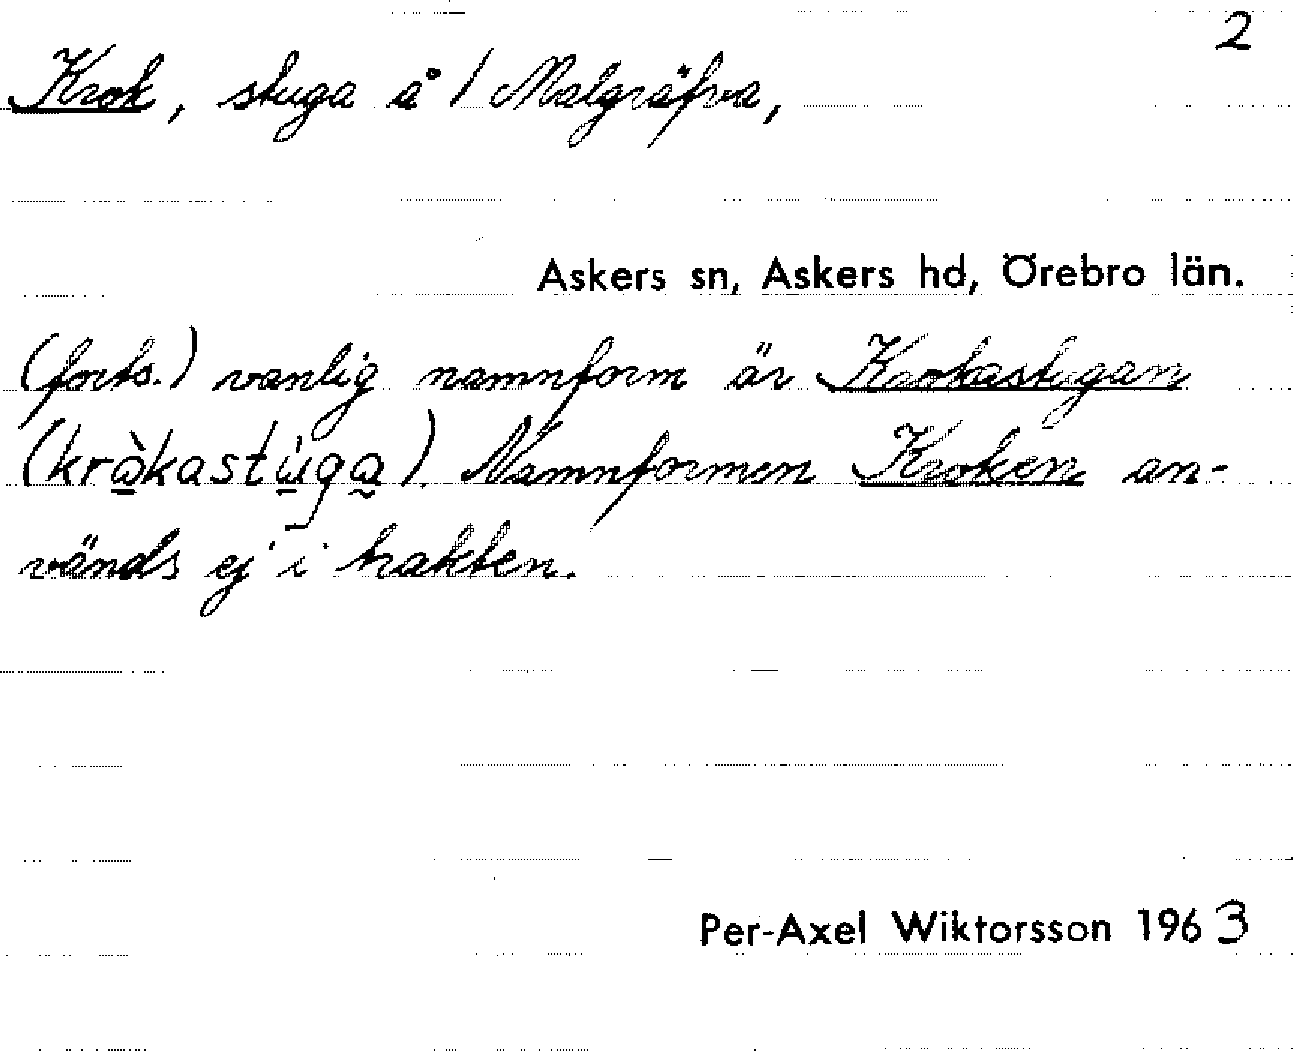 2
Krok, stuga å / Malgräfva,
Askers sn, Askers hd, Örebro län.
(forts.) vanlig namnform är Krokastugan
(kràkastùga). Namnformen Kroken an-
vänds ej i trakten.
Per-Axel Wiktorsson 1963